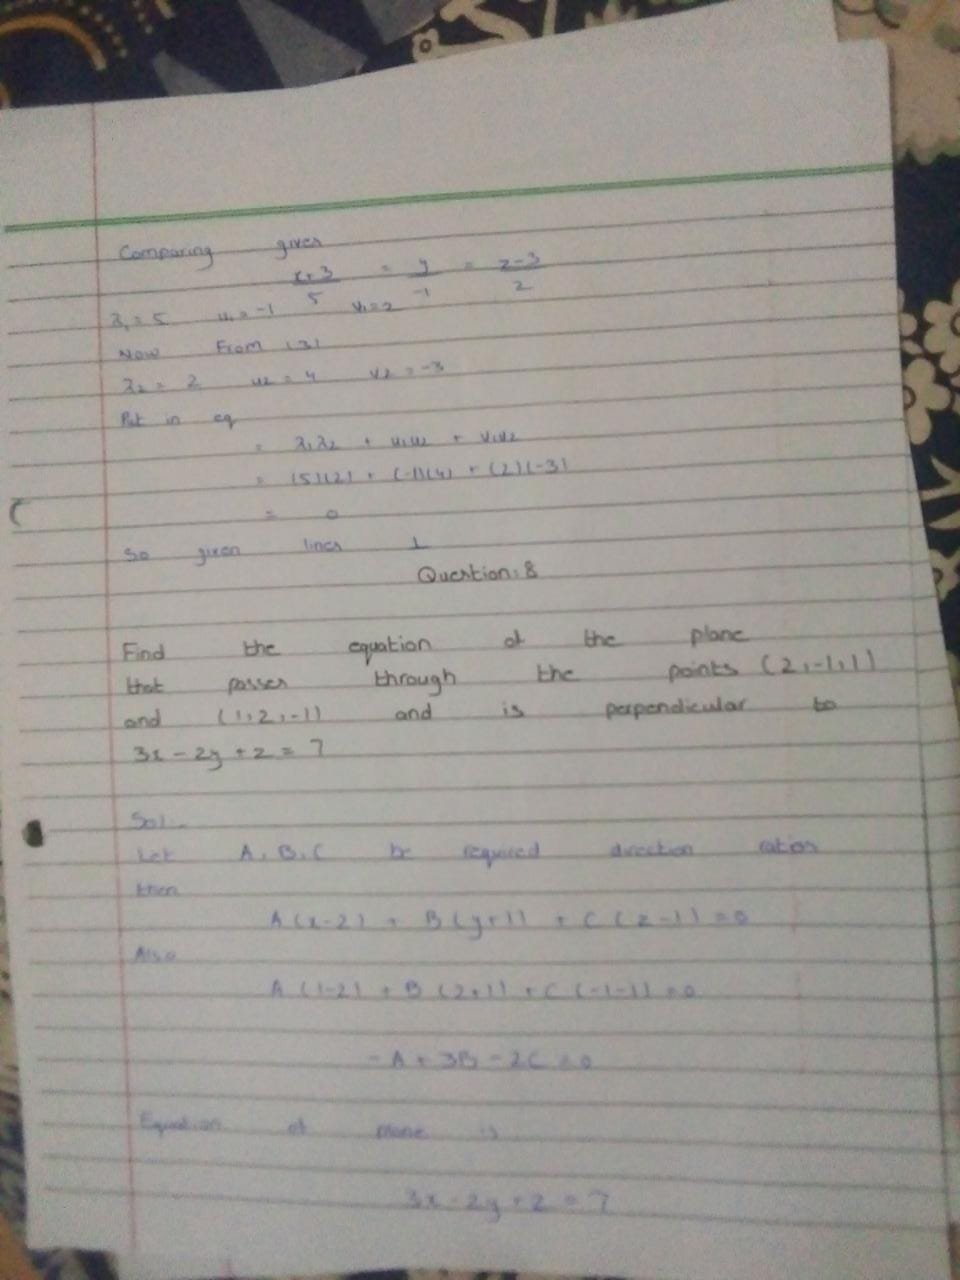 Comparing gives
x+3/5 = y/-1 = z-3/2
λ₁ = 5 u₁ = -1 v₁ = 2
Now From (3)
λ₂ = 2 u₂ = 4 v₂ = -3
Put in eq
= λ₁λ₂ + u₁u₂ + v₁v₂
= (5)(2) + (-1)(4) + (2)(-3)
= 0
So given lines ⊥
Question: 8
Find the equation of the plane
that passes through the points (2,-1,1)
and (1,2,-1) and is perpendicular to
3x - 2y + z = 7
Sol..
Let A, B, C be required direction ratios
then
A(x-2) + B(y+1) + C(z-1) = 0
Also
A(1-2) + B(2+1) + C(-1-1) = 0
-A + 3B - 2C = 0
Equation of plane is
3x - 2y + z = 7